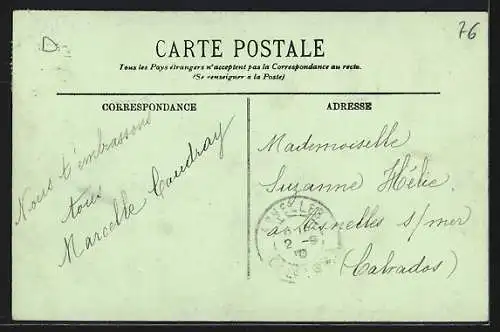 D
76
CARTE POSTALE
Tous les Pays étrangers n'acceptent pas la Correspondance au recto.
(Se renseigner à la Poste)
CORRESPONDANCE
ADRESSE
Nous t'embrassons
tous
Marcelle Caudray
Mademoiselle
Suzanne Hélie
à Asnelles s/mer
(Calvados)
2 - 9